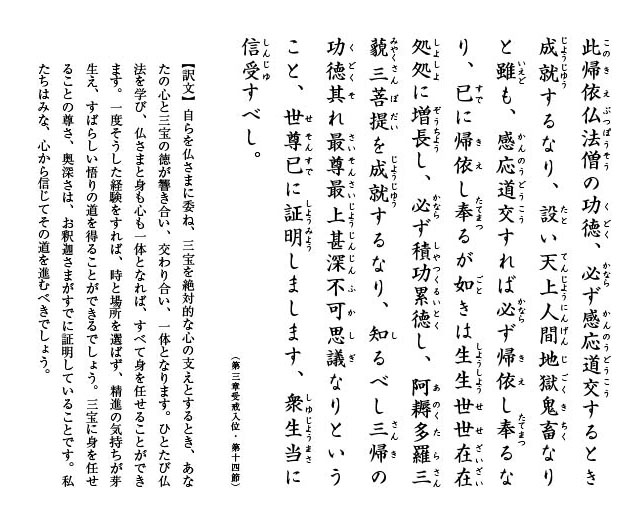 此帰依仏法僧の功徳、必ず感応道交するとき
成就するなり、設い天上人間地獄鬼畜なり
と雖も、感応道交すれば必ず帰依し奉るな
り、已に帰依し奉るが如きは生生世世在在
処処に増長し、必ず積功累徳し、阿耨多羅三
藐三菩提を成就するなり、知るべし三帰の
功徳其れ最尊最上甚深不可思議なりという
こと、世尊已に証明しまします、衆生当に
信受すべし。
(第三章受戒入位・第十四節)
【訳文】自らを仏さまに委ね、三宝を絶対的な心の支えとするとき、あな
たの心と三宝の徳が響き合い、交わり合い、一体となります。ひとたび仏
法を学び、仏さまと身も心も一体となれば、すべて身を任せることができ
ます。一度そうした経験をすれば、時と場所を選ばず、精進の気持ちが芽
生え、すばらしい悟りの道を得ることができるでしょう。三宝に身を任せ
ることの尊さ、奥深さは、お釈迦さまがすでに証明していることです。私
たちはみな、心から信じてその道を進むべきでしょう。